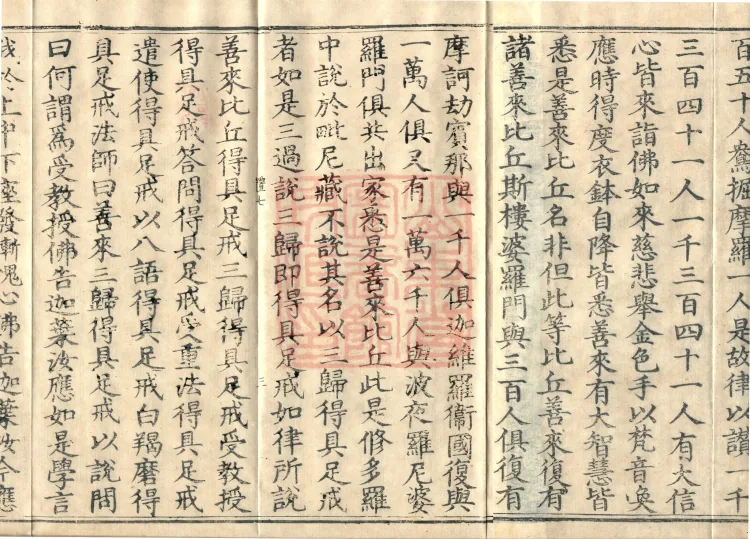 百五十人鴦掘摩羅一人是故律以讚一千
三百四十一人一千三百四十一人有大信
心皆來詣佛如來慈悲舉金色手以梵音奐
應時得度衣鉢自降皆悉善來有大智慧皆
悉是善來比丘名非但此等比丘善來復有
諸善來比丘斯樓婆羅門與三百人俱復有
摩訶劫賓那與一千人俱迦維羅衞國復與
一萬人俱又有一萬六千人與波夜羅尼婆
羅門俱共出家悉是善來比丘此是修多羅
中說於毗尼藏不說其名以三歸得具足戒
者如是三過說三歸即得具足戒如律所說
善來比丘得具足戒三歸得具足戒受教授
得具足戒答問得具足戒受重法得具足戒
遣使得具足戒以八語得具足戒白羯磨得
具足戒法師曰善來三歸得具足戒以說問
曰何謂為受教授佛告迦葉汝應如是學言
我於上中下座發慚愧心佛告迦葉汝今應